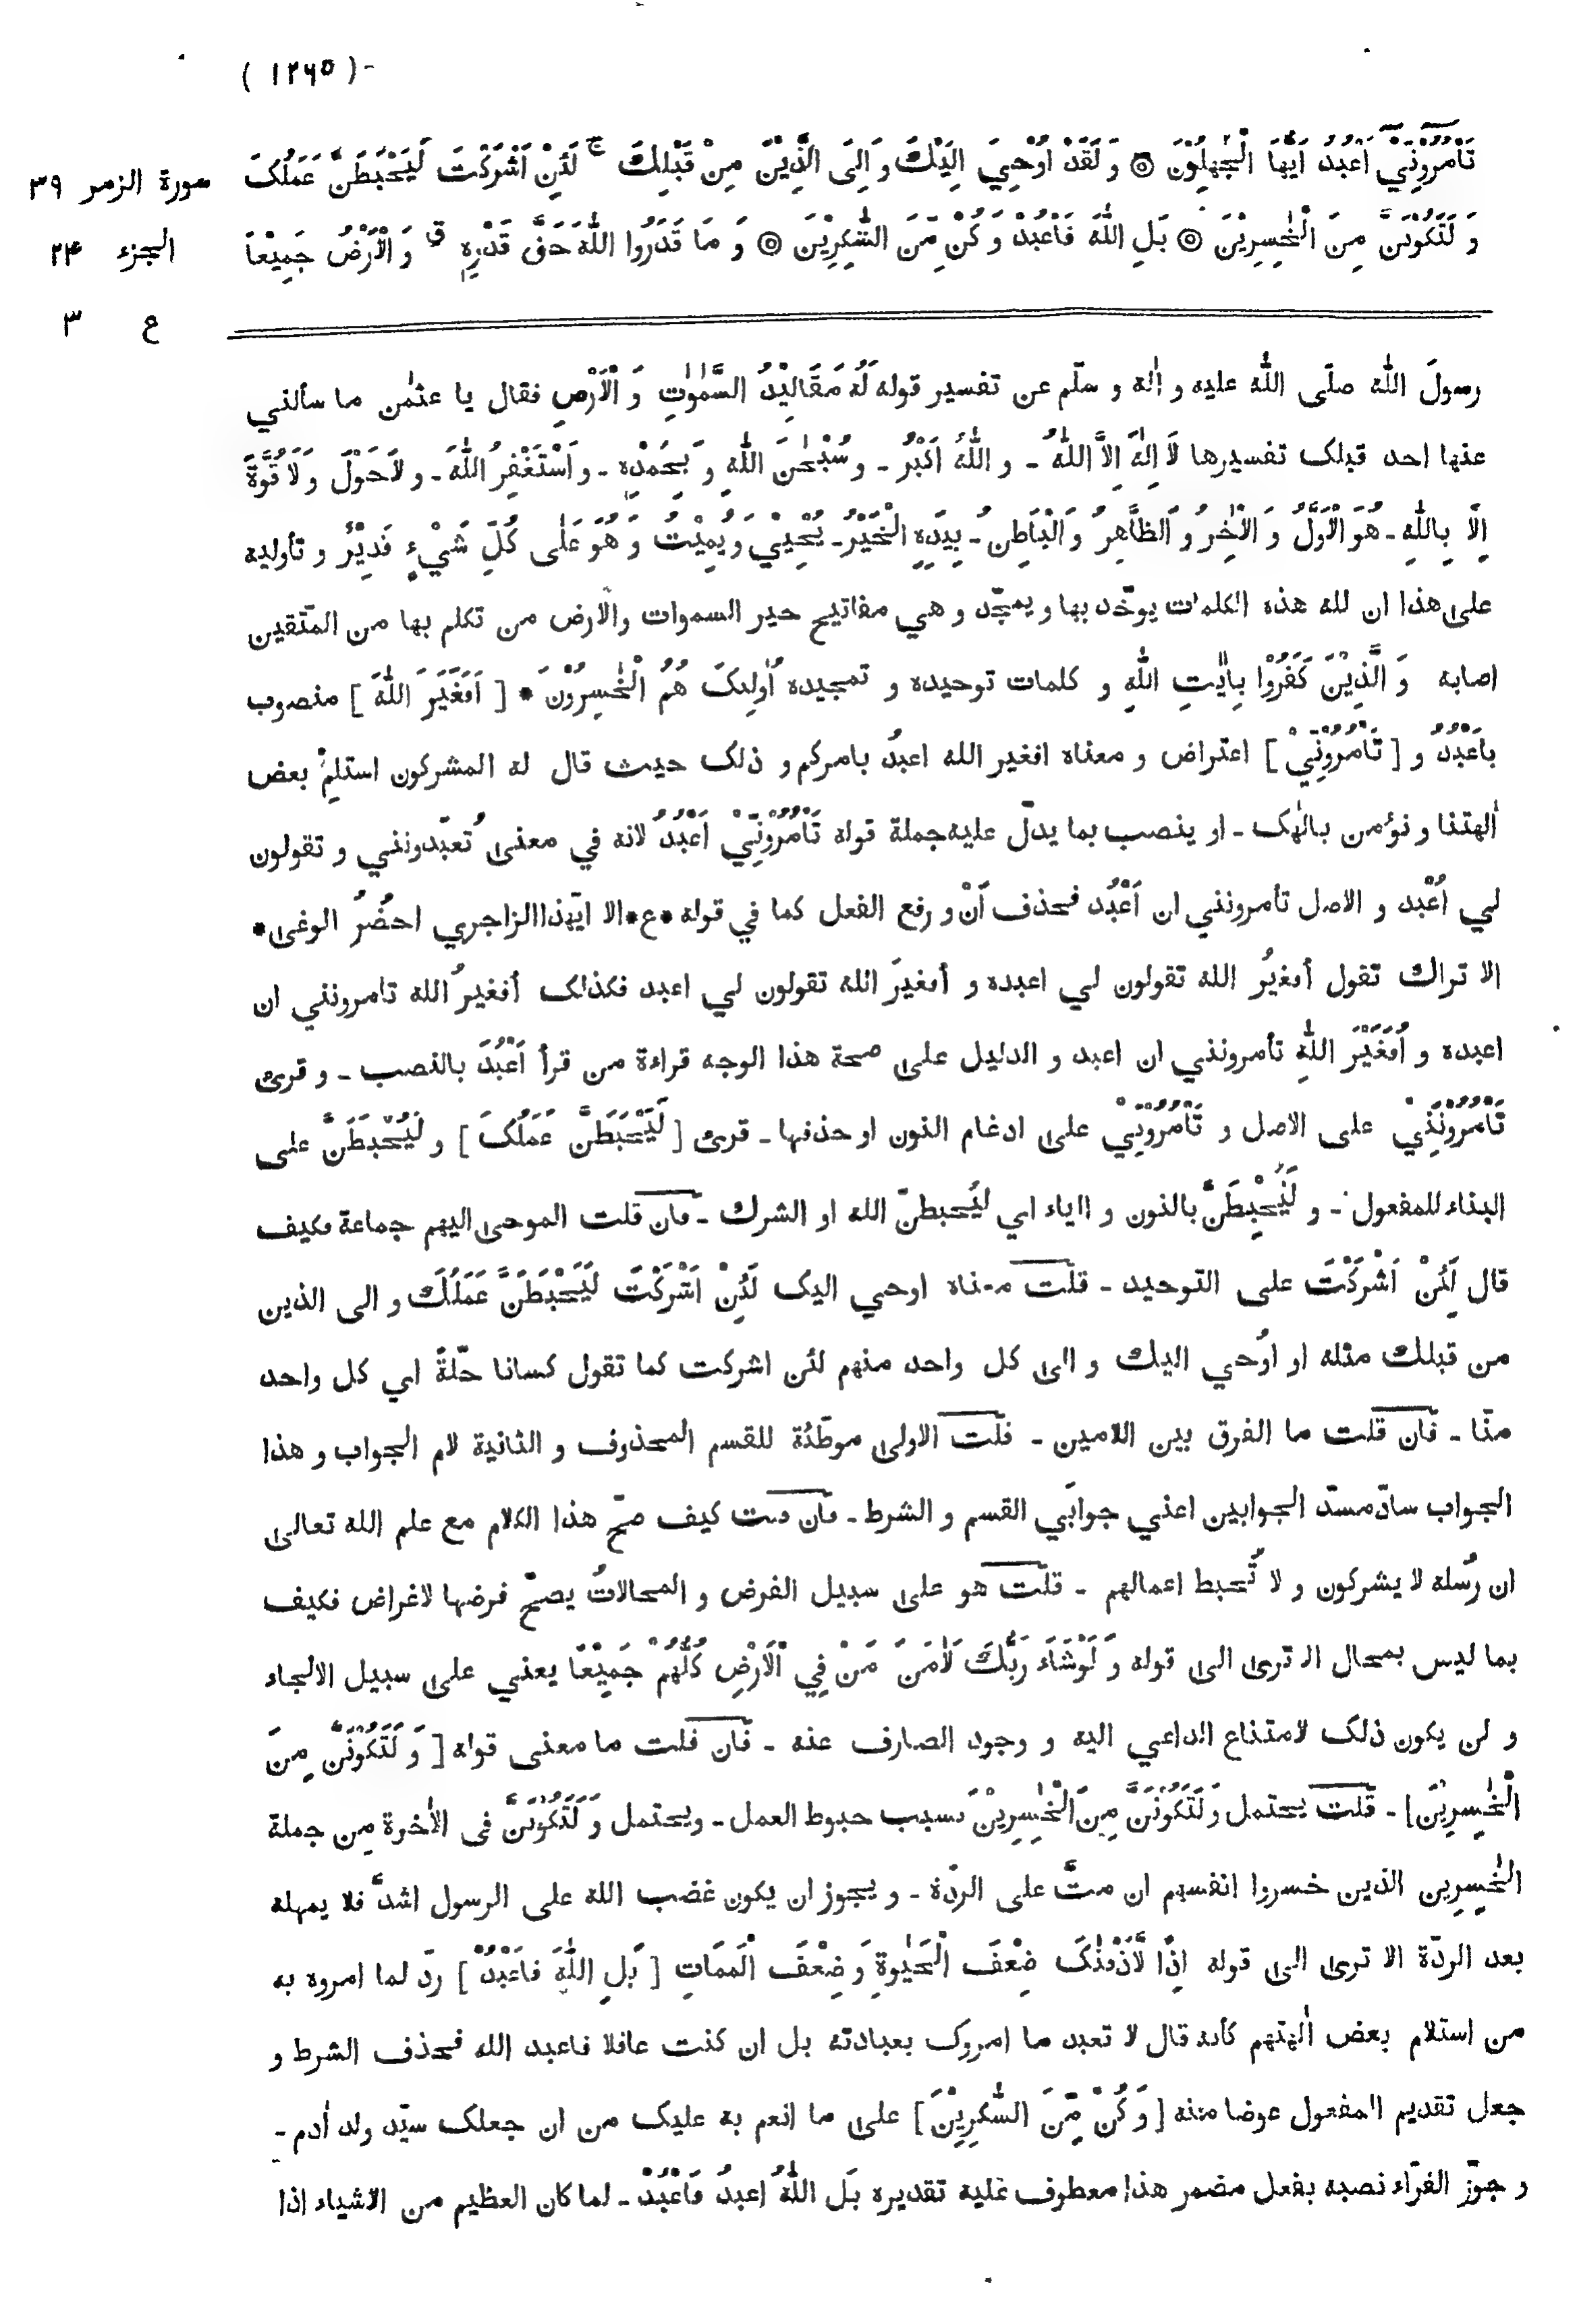 ( ١٢٦٥ )
تَأْمُرُوْنِّيْٓ اَعْبُدُ اَيُّهَا الْجٰهِلُوْنَ ۞ وَ لَقَدْ اُوْحِيَ اِلَيْكَ وَ اِلَى الَّذِيْنَ مِنْ قَبْلِكَ ۚ لَئِنْ اَشْرَكْتَ لَيَحْبَطَنَّ عَمَلُكَ
سورة الزمر ٣٩
وَ لَتَكُوْنَنَّ مِنَ الْخٰسِرِيْنَ ۞ بَلِ اللّٰهَ فَاعْبُدْ وَ كُنْ مِّنَ الشّٰكِرِيْنَ ۞ وَ مَا قَدَرُوا اللّٰهَ حَقَّ قَدْرِهٖ ق وَ الْاَرْضُ جَمِيْعًا
الجزء ٢٤
ع ٣
رسولَ اللّٰه صلّى اللّٰه عليه و اٰله و سلّم عن تفسير قوله لَهُ مَقَالِيْدُ السَّمٰوٰتِ وَ الْاَرْضِ فقال يا عثمٰن ما سألني
عنها احد قبلك تفسيرها لَا اِلٰهَ اِلَّا اللّٰهُ - و اللّٰهُ اَكْبَرُ - و سُبْحٰنَ اللّٰهِ وَ بِحَمْدِهٖ - و اَسْتَغْفِرُ اللّٰهَ - و لَا حَوْلَ وَ لَا قُوَّةَ
اِلَّا بِاللّٰهِ - هُوَ الْاَوَّلُ وَ الْاٰخِرُ وَ الظَّاهِرُ وَ الْبَاطِنُ - بِيَدِهِ الْخَيْرُ - يُحْيِيْ وَ يُمِيْتُ وَ هُوَ عَلٰى كُلِّ شَيْءٍ قَدِيْرٌ و تأويله
على هذا ان لله هذه الكلمات يوحّد بها و يمجّد و هي مفاتيح خير السموات و الارض من تكلم بها من المتّقين
اصابه وَ الَّذِيْنَ كَفَرُوْا بِاٰيٰتِ اللّٰهِ و كلمات توحيده و تمجيده اُولٰئِكَ هُمُ الْخٰسِرُوْنَ * [ اَفَغَيْرَ اللّٰهَ ] منصوب
باَعْبُدُ و [ تَأْمُرُوْنِّيْ ] اعتراض و معناه افغير الله اعبدُ بامركم و ذلك حيث قال له المشركون استلِمْ بعض
اٰلهتنا و نؤمن بالٰهك - او ينصب بما يدلّ عليه جملة قوله تَأْمُرُوْنِّيْ اَعْبُدُ لانه في معنى تُعبّدونني و تقولون
لي اُعْبد و الاصل تأمرونني ان اَعْبُد فحذف اَنْ و رفع الفعل كما في قوله *ع* الا ايّهذا الزاجري احضُرُ الوغى *
الا تراك تقول أفغيرُ الله تقولون لي اعبده و أفغيرَ الله تقولون لي اعبد فكذلك أفغيرُ الله تامرونني ان
اعبده و اَفَغَيْرَ اللّٰهِ تأمرونني ان اعبد و الدليل على صحة هذا الوجه قراءة من قرأ اَعْبُدَ بالنصب - و قرئ
تَأْمُرُوْنَنِيْ على الاصل و تَأْمُرُوْنِيْ على ادغام النون او حذفها - قرئ [ لَيَحْبَطَنَّ عَمَلُكَ ] و لَيُحْبَطَنَّ على
البناء للمفعول - و لَنُحْبِطَنَّ بالنون و الياء اي ليُحبطنّ الله او الشرك - فان قلت الموحى اليهم جماعة فكيف
قال لَئِنْ اَشْرَكْتَ على التوحيد - قلت معناه اوحي اليك لَئِنْ اَشْرَكْتَ لَيَحْبَطَنَّ عَمَلُكَ و الى الذين
من قبلك مثله او اُوحي اليك و الى كل واحد منهم لئن اشركت كما تقول كسانا حلّةً اي كل واحد
منّا - فان قلت ما الفرق بين اللامين - قلت الاولى موطّئة للقسم المحذوف و الثانية لام الجواب و هذا
الجواب سادّ مسدّ الجوابين اعني جوابَي القسم و الشرط - فان قلت كيف صحّ هذا الكلام مع علم الله تعالى
ان رُسله لا يشركون و لا تُحبط اعمالهم - قلت هو على سبيل الفرض و المحالاتُ يصحّ فرضها لاغراض فكيف
بما ليس بمحال الا ترى الى قوله وَ لَوْ شَاءَ رَبُّكَ لَاٰمَنَ مَنْ فِي الْاَرْضِ كُلُّهُمْ جَمِيْعًا يعني على سبيل الالجاء
و لن يكون ذلك لامتناع الداعي اليه و وجود الصارف عنه - فان قلت ما معنى قوله [ وَ لَتَكُوْنَنَّ مِنَ
الْخٰسِرِيْنَ ] - قلت يحتمل وَ لَتَكُوْنَنَّ مِنَ الْخٰسِرِيْنَ بسبب حبوط العمل - و يحتمل وَ لَتَكُوْنَنَّ فى الاٰخرة مِن جملة
الخٰسِرِين الذين خسروا انفسهم ان متَّ على الردّة - و يجوز ان يكون غضب الله على الرسول اشدَّ فلا يمهله
بعد الردّة الا ترى الى قوله اِذًا لَّاَذَقْنٰكَ ضِعْفَ الْحَيٰوةِ وَ ضِعْفَ الْمَمَاتِ [ بَلِ اللّٰهَ فَاعْبُدْ ] ردّ لما امروه به
من استلام بعض اٰلهتهم كأنه قال لا تعبد ما امروك بعبادته بل ان كنت عاقلا فاعبد الله فحذف الشرط و
جعل تقديم المفعول عوضا منه [ وَ كُنْ مِّنَ الشّٰكِرِيْنَ ] على ما انعم به عليك من ان جعلك سيّد ولد اٰدم -
و جوّز الفرّاء نصبه بفعل مضمر هذا معطوف عليه تقديره بَل اللّٰهَ اعبدُ فَاعْبُدْ - لما كان العظيم من الاشياء اذا